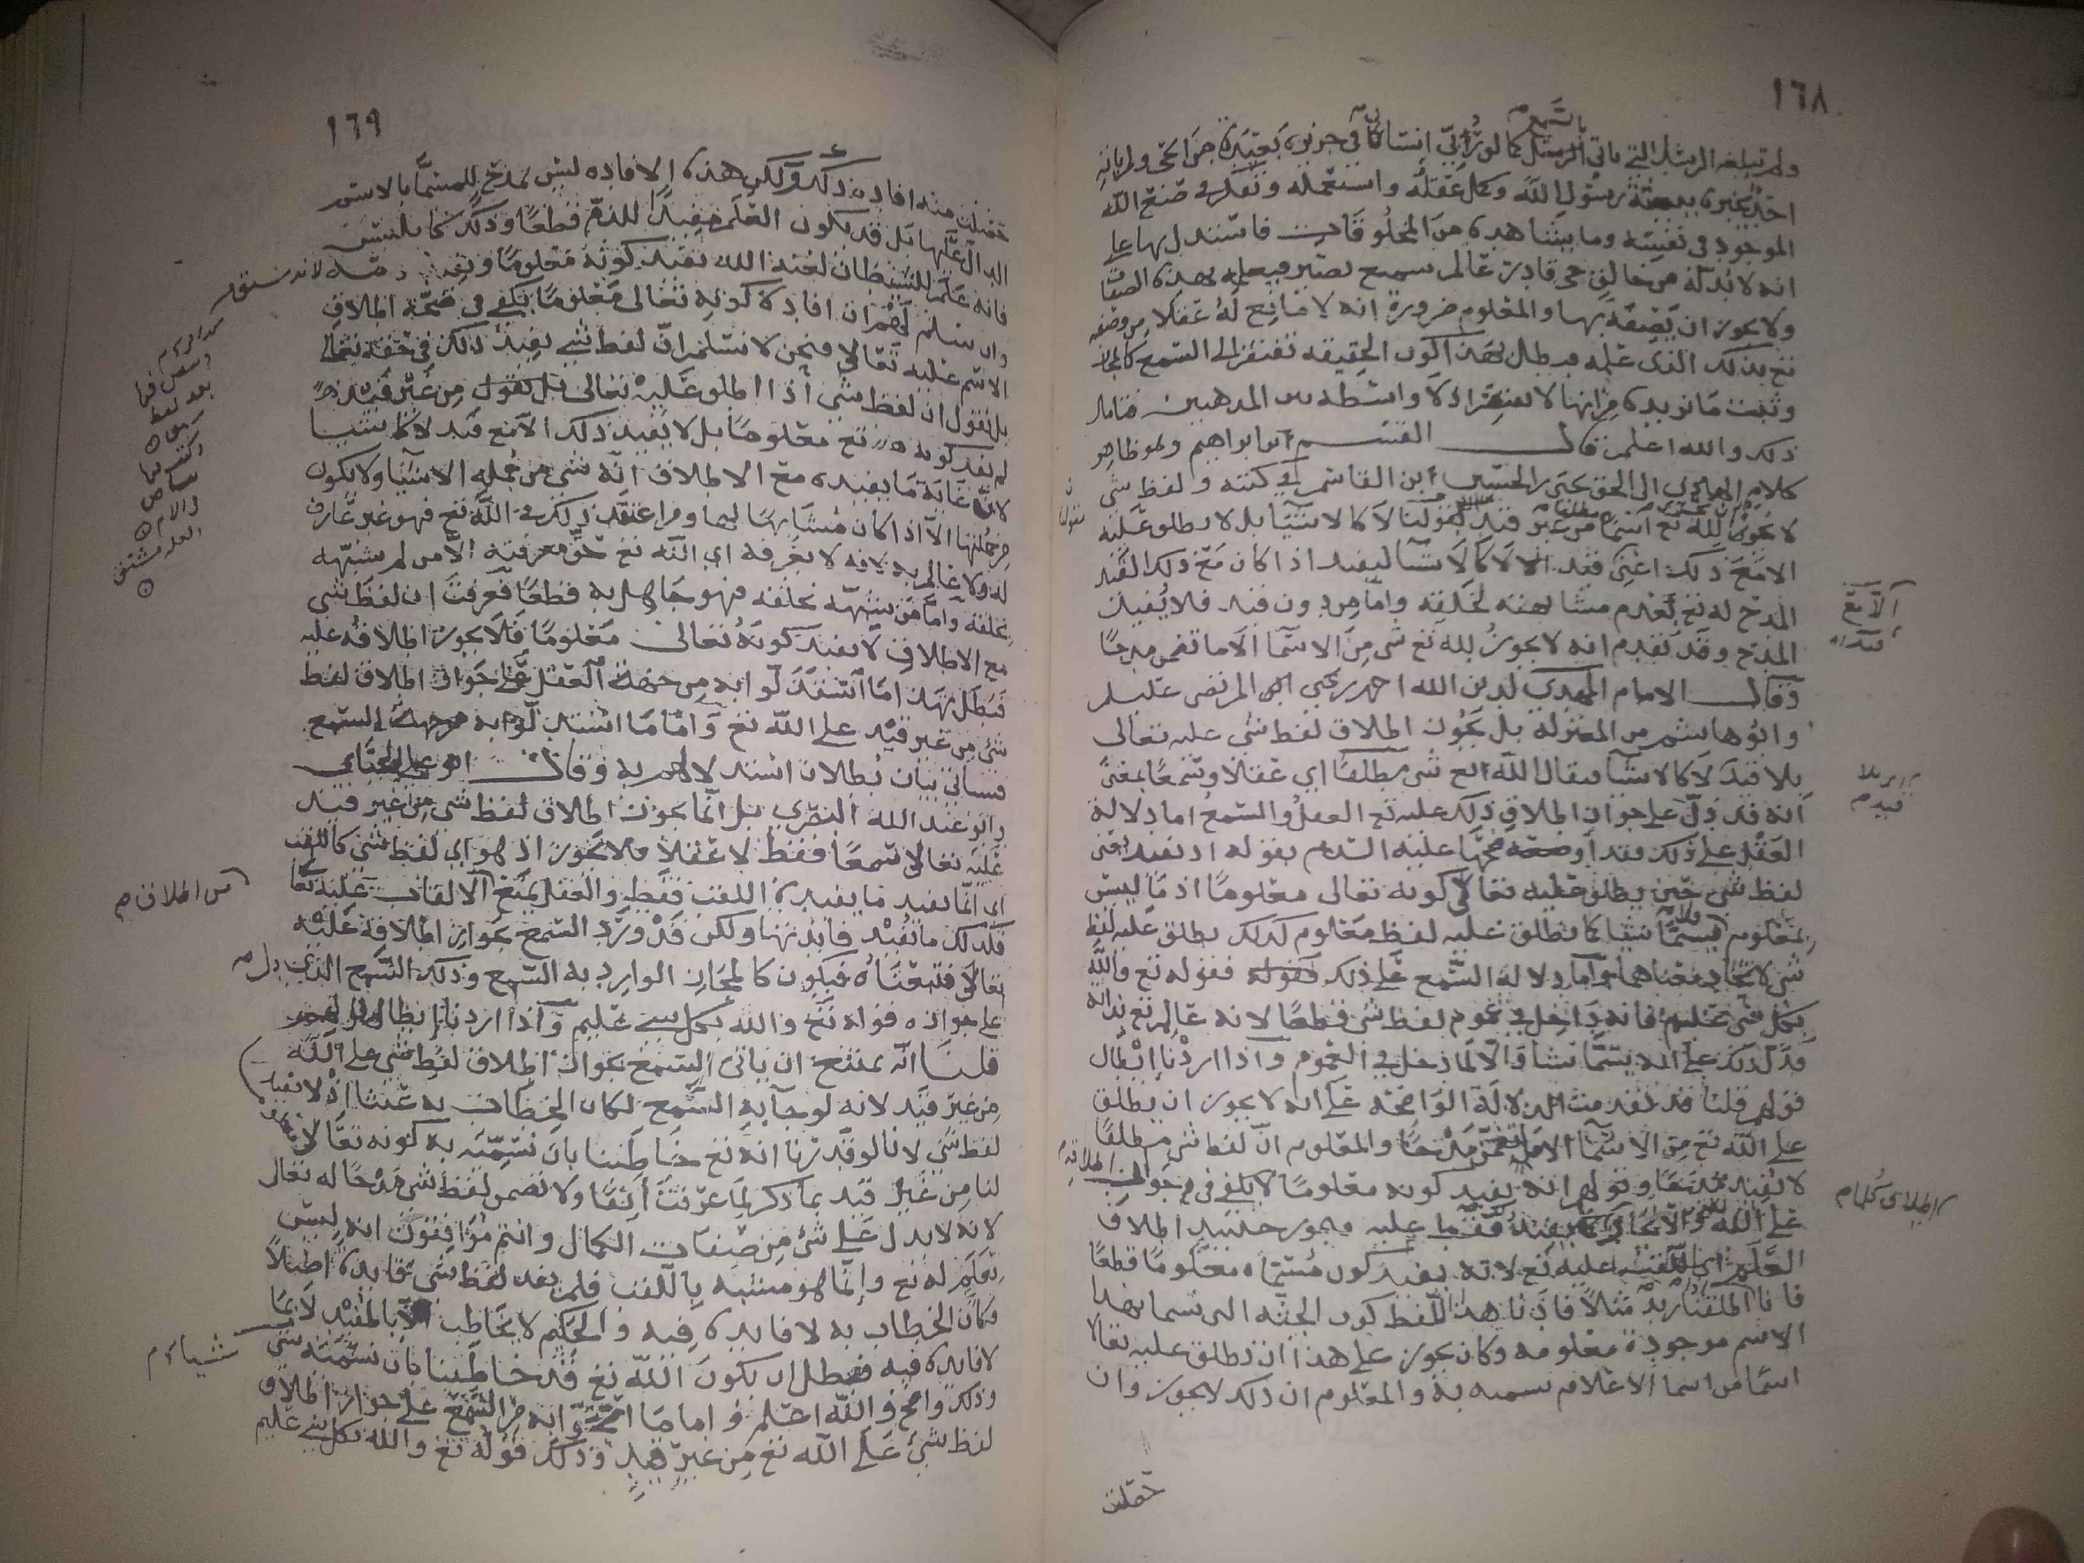 ١٦٨
ولم تبلغه الرسل التي باتى الرسل كما لو رُبّي إنسانا في جزيرة بعيدة حتى ولم ياته
احد يخبره ببعثة رسول الله وكمل عقله واستعمله وتفكر في صنع الله
الموجود في نفسه وما يشاهده من المخلوقات فاستدل بها على
انه لا بد له من خالق حي قادر عالم سميع بصير فيعلمه بهذه الصفا
ولا يجوز ان يصفه بها والمعلوم ضرورة انه لا مانع له عقلا من وصفه
تع بذلك الذي علمه فبطل بهذا كون الحقيقة تفتقر الى السمع كالمجاز
وثبت ما نريده من انها لا تفتقر اذ لا واسطه بين المذهبين
ذلك والله اعلم قال القسم ابن ابراهيم وهو ظاهر
كلام الهادي الى الحق يحيى بن الحسين ابن القاسم في كتبه ولفظ شي
لا يكون لله تع اسما من غير قيد كقولنا لا كالاشيا بل لا يطلق عليه
الا مع ذلك اعني قيد لا كالاشيا ليفيد اذا كان مع ذلك القيد
المدح له تع بعدم مشابهته لخلقه واما من دون قيد فلا يفيد
المدح وقد تقدم انه لا يجوز لله تع شي من الاسما الا ما تضمن مدحا
وقال الامام المهدي لدين الله احمد بن يحيى المرتضى عليلم
وابو هاشم من المعتزلة بل يجوز اطلاق لفظ شي عليه تعالى
بلا قيد لا كالاشيا فيقال الله تع شي مطلقا اي عقلا وسمعا بمعنى
انه قد دل على جواز اطلاق ذلك عليه تع العقل والسمع اما دلالة
العقل على ذلك فقد اوضحها عليه السلم بقوله اذ يفيد اعني
لفظ شي حين يطلق عليه تعالى كونه تعالى معلوما اذ ما ليس
بمعلوم فلا يسما شيا كما يطلق عليه لفظ معلوم كذلك يطلق عليه لفظ
شي لاتحاد معناهما واما دلالة السمع على ذلك فقوله تع والله
بكل شي عليم فانه داخل في عموم لفظ شي قطعا لانه عالم تع بذاته
فدل ذلك على انه يسما شيا والا لما دخل في العموم واذا اردنا ابطال
قولهم قلنا قد تقدمت الدلالة الواضحة على انه لا يجوز ان يطلق
على الله تع من الاسما الا ما تضمن مدحا والمعلوم ان لفظ شي مطلقا
لا يفيد مدحا وقولهم انه يفيد كونه معلوما لا يكفي في جواز اطلاقه
على الله تعالى والا
العلم اي اللقب عليه تع لانه يفيد كون مسماه معلوما قطعا
فانا اذا لقبنا زيدا مثلا فادنا هذا اللفظ كون الجثه التي تسما بهذا
الاسم موجودة معلومه وكان يجوز على هذا ان نطلق عليه تعالى
اسما من اسما الاعلام نسميه به والمعلوم ان ذلك لا يجوز وان
حصلت
الا مع
قيد
بلا
قيد م
اطلاق
١٦٩
حصلت منه افادة ذلك ولكن هذه الافاده ليس بمدح للمسما بالاسم
الدال عليها بل قد يكون العلم مفيدا للذم قطعا وذلك كابليس
فانه علم للشيطان لعنه الله يفيد كونه معلوما
وان سلم لهم ان افادة كونه تعالى معلوما يكفي في صحة اطلاق
الاسم عليه تعالى فنحن لا نسلم ان لفظ شي يفيد ذلك في حقه تعالى
بل نقول ان لفظ شي اذا اطلق عليه تعالى من غير قيد
لم يفد كونه تع معلوما بل لا يفيد ذلك الا مع قيد لا كالاشيا
لان غاية ما يفيده مع الاطلاق انه شي من جملة الاشيا ولا يكون
من جملتها الا اذا كان مشابها لها ومن اعتقد ذلك في الله تع فهو غير عارف
له ولا عالم به لانه لا يعرفه اي الله تع حق معرفته الا من لم يشبهه
بخلقه واما من شبهه بخلقه فهو جاهل به قطعا فعرفت ان لفظ شي
مع الاطلاق لا يفيد كونه تعالى معلوما فلا يجوز اطلاقه عليه
فبطل بهذا ما استند لوا به من جهة العقل على جواز اطلاق لفظ
شي من غير قيد على الله تع واما ما استدلوا به من جهة السمع
فسياتي بيان بطلان استدلالهم به وقال ابو علي الجبائي
وابو عبد الله البصري بل انما يجوز اطلاق لفظ شي من غير قيد
عليه تعالى سمعا فقط لا عقلا فلا يجوز اذ هو اي لفظ شي كاللقب
اي انما يفيد ما يفيده اللقب فقط والعقل يمنع الالقاب عليه تعا
فكذلك ما تفيد فائدتها ولكن قد ورد السمع بجواز اطلاقه عليه
تعالى فتبعناه فيكون كالمجاز الوارد به السمع وذلك السمع الذي دل
على جوازه قوله تع والله بكل شي عليم واذا اردنا ابطال قولهم
قلنا انه يمتنع ان ياتي السمع بجواز اطلاق لفظ شي على الله
من غير قيد لانه لو جا به السمع لكان الخطاب به عبثا اذ لا يفيد
لفظ شي لانا لو قدرنا انه تع خاطبنا بان نسميه به كونه تعالى
لنا من غير قيد بما ذكر لما عرفت آنفا ولا تضمن لفظ شي مدحا له تعالى
لانه لا يدل على شي من صفات الكمال وانتم موافقون انه ليس
بعلم له تع وانما هو مشبه باللقب فلم يفد لفظ شي فايدة اصلا
فكان الخطاب به لا فايدة فيه والحكيم لا يخاطب الا بالمفيد لا بما
لا فايده فيه فبطل ان يكون الله تع قد خاطبنا بان نسميه شي
وذلك واضح والله اعلم واما ما احتجوا به من السمع على جواز اطلاق
لفظ شي على الله تع من غير قيد وذلك قوله تع والله بكل شي عليم
من اطلاق م
شيا م